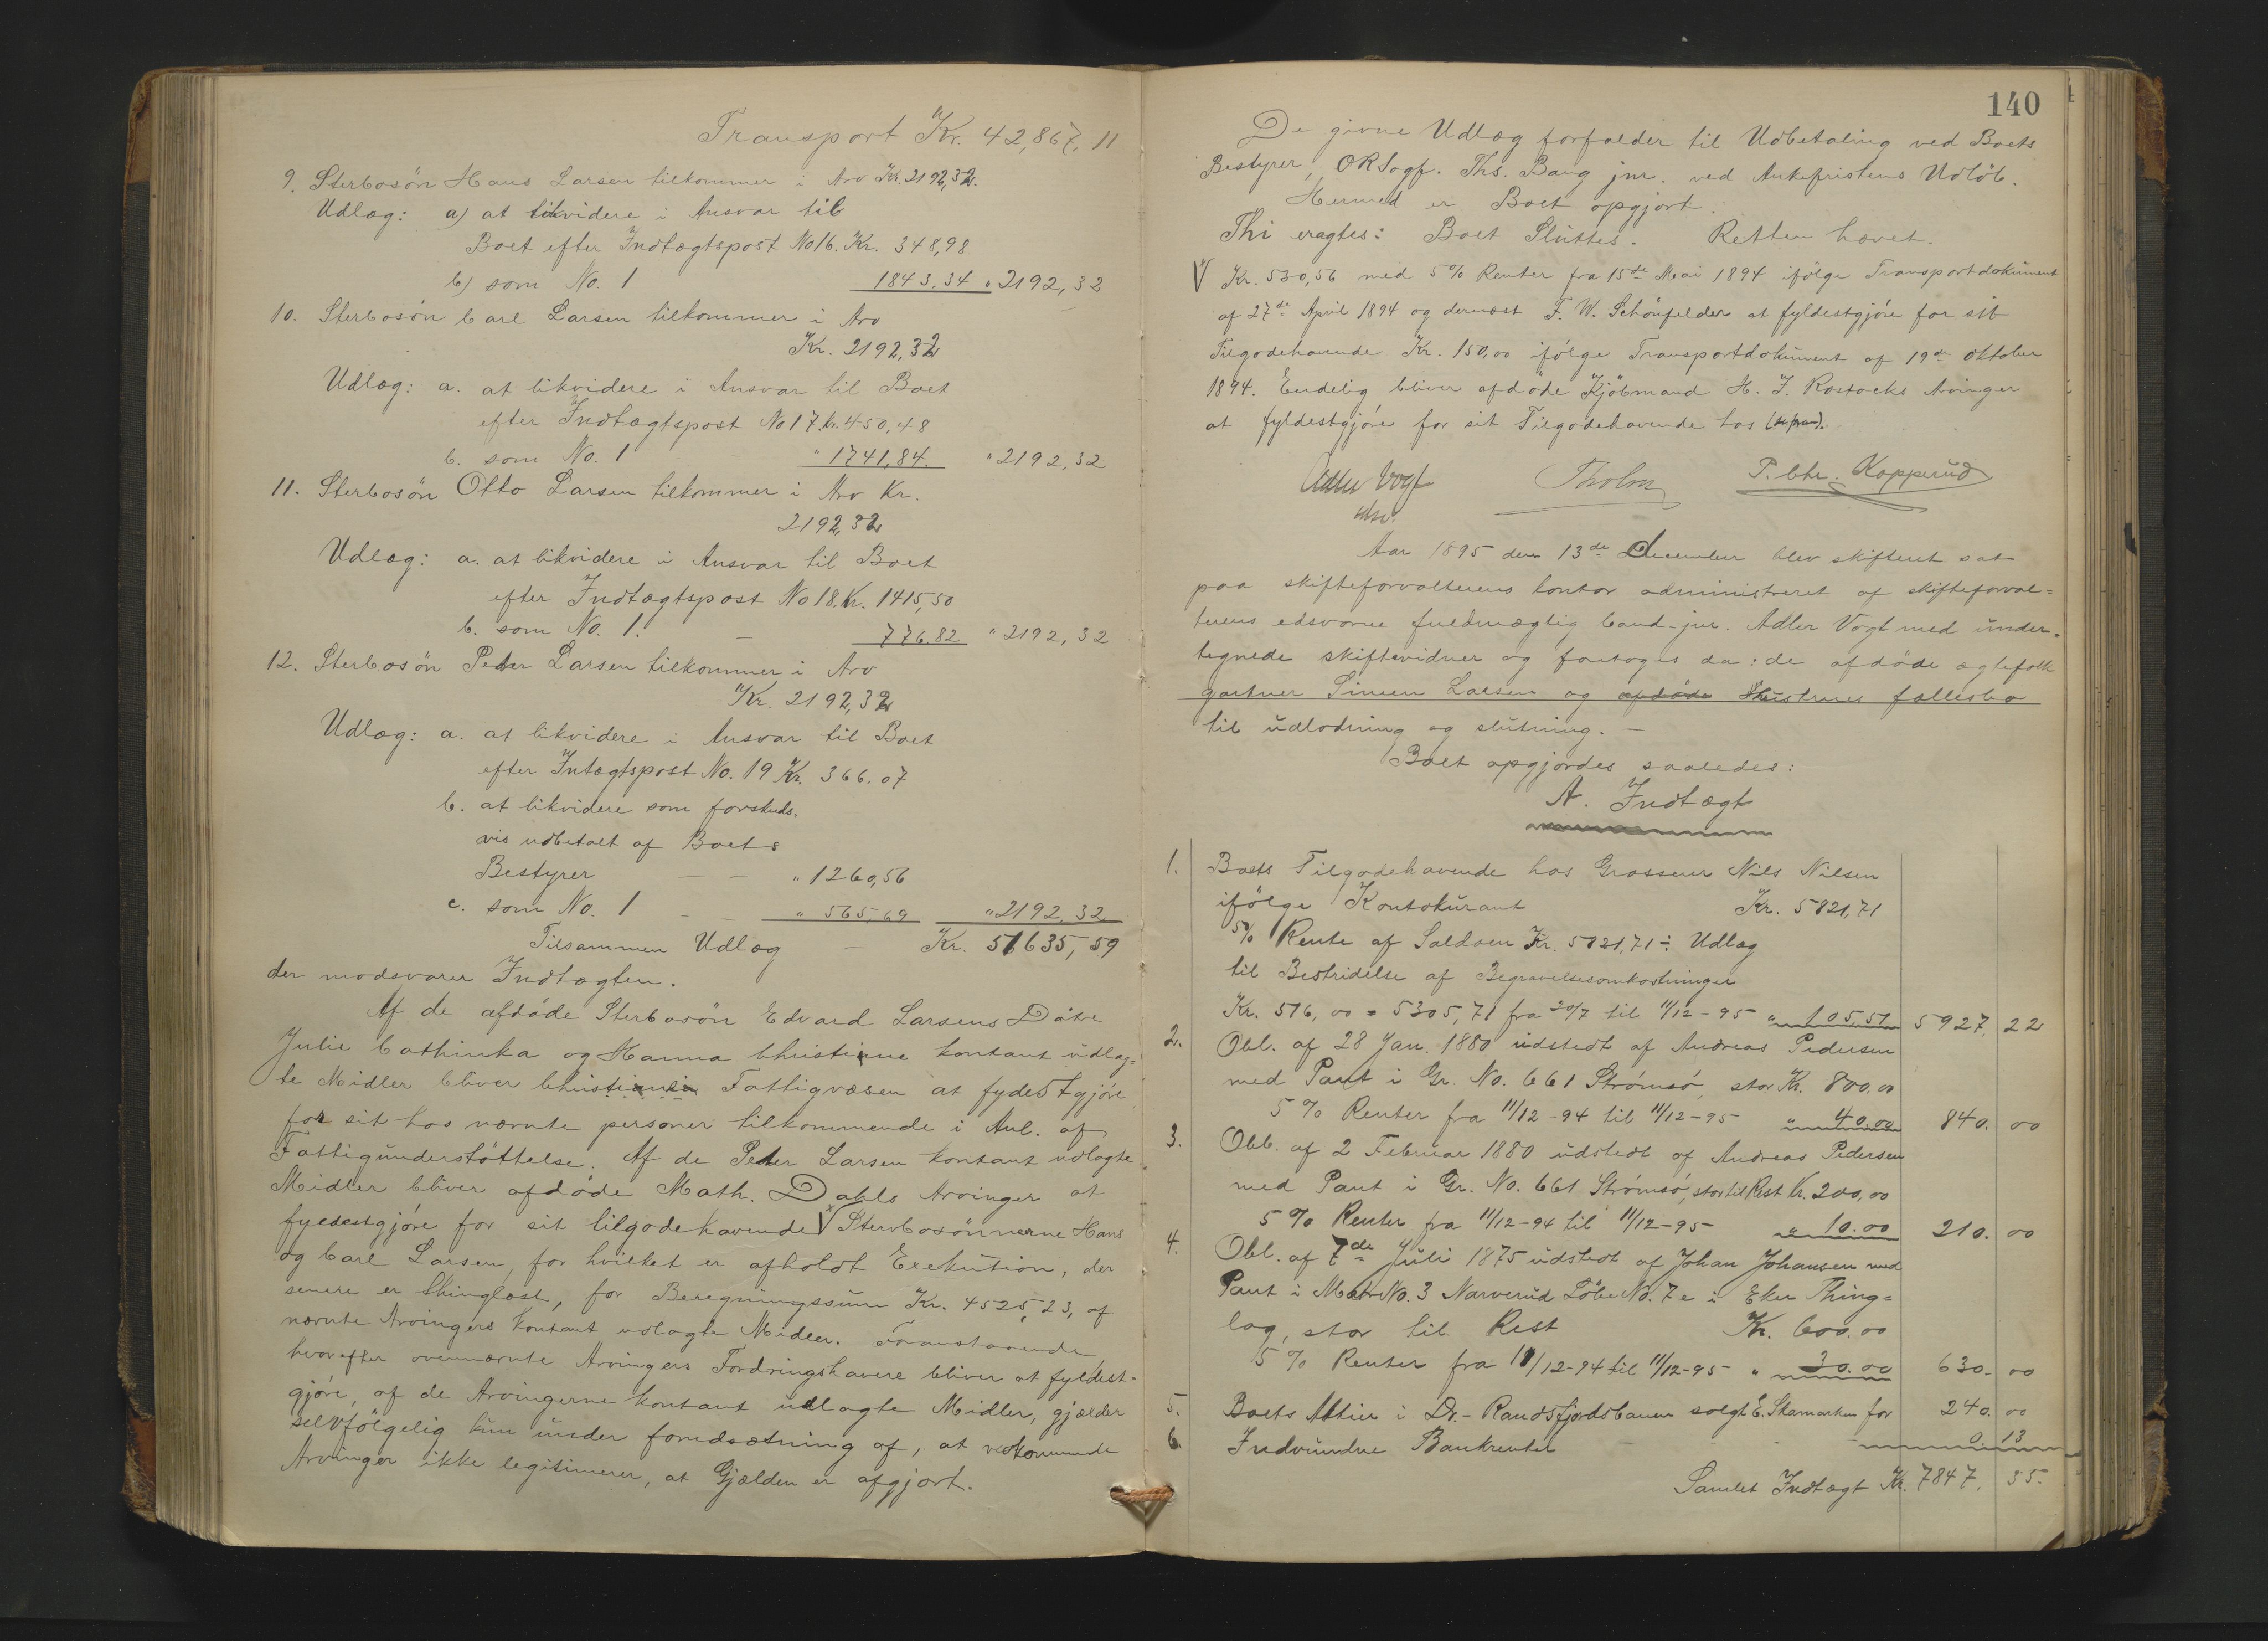 Transport Kr. 42,867,11
9. Sterbosön Hans Larsen tilkommer i Arv Kr. 2192,32.
Udlæg: a) at likvidere i Ansvar til
Boet efter Indtægtspost No 16. Kr. 348,98
b) som No. 1 1843.34 " 2192,32
10. Sterbosön Carl Larsen tilkommer i Arv
Kr. 2192,32
Udlæg: a. at likvidere i Ansvar til Boet
efter Indtægtspost No 17. Kr. 450,48
b. som No. 1 — " 1741,84. " 2192,32
11. Sterbosön Otto Larsen tilkommer i Arv Kr.
2192,32
Udlæg: a. at likvidere i Ansvar til Boet
efter Indtægtspost No 18. Kr. 1415,50
b. som No. 1. — 776,82 " 2192,32
12. Sterbosön Peder Larsen tilkommer i Arv
Kr. 2192,32
Udlæg: a. at likvidere i Ansvar til Boet
efter Intægtspost No. 19 Kr. 366.07
b. at likvidere som forskuds-
vis udbetalt af Boets
Bestyrer — — " 1260,56
c. som No. 1 — — " 565,69 " 2192,32
Tilsammen Udlæg — Kr. 51635,59
der modsvarer Indtægten.
Af de afdöde Sterbosön Edvard Larsens Dötre
Julie Cathinka og Hanna Christiane kontant udlag-
te Midler bliver Christiania Fattigvæsen at fydestgjöre
for sit hos nævnte personer tilkommende i Anl. af
Fattigunderstöttelse. Af de Peder Larsen kontant udlagte
Midler bliver afdöde Math. Dahls Arvinger at
fyldestgjöre for sit tilgodehavende V Stervbosönnerne Hans
og Carl Larsen, for hvilket er afholdt Exekution, der
senere er thinglæst, for Beregningssum Kr. 4525,23, af
nævnte Arvingers kontant udlagte Midler. Foranstaaende
hvorefter ovennævnte Arvingers Fordringshavere bliver at fyldest-
gjöre, af de Arvingerne kontant udlagte Midler, gjælder
selvfölgelig kun under forudsætning af, at vedkommende
Arvinger ikke legitimerer, at Gjælden er afgjort.
140
De givne Udlæg forfalder til Udbetaling ved Boets
Bestyrer, ORSagf. Ths. Bang jnr. ved Ankefristens Udlöb.
Hermed er Boet opgjort.
Thi eragtes: Boet Sluttes. Retten hævet.
V Kr. 530,56 med 5% Renter fra 15de Mai 1894 ifölge Transportdokument
af 27de April 1894 og dernæst F. W. Schönfelder at fyldestgjöre for sit
Tilgodehavende Kr. 150,00 ifölge Transportdokument af 19de Oktober
1894. Endelig bliver afdöde Kjöbmand H. J. Rostocks Arvinger
at fyldestgjöre for sit Tilgodehavende hos (se foran).
Adler Vogt Tholm P. Chr. Kopperud
Aar 1895 den 13de December blev skifteret sat
paa skifteforvalterens kontor administreret af skifteforval-
terens edsvorne fuldmægtig Cand-jur. Adler Vogt med under-
tegnede skiftevidner og foretoges da: de afdöde ægtefolk
gartner Simen Larsen og afdöde Hustrues fællesbo
til udlodning og slutning. —
Boet opgjordes saaledes:
A. Indtægt
1. Boets Tilgodehavende hos Grosserer Nils Nilsen
ifölge Kontokurant Kr. 5821,71
5% Rente af Saldoen Kr. 5821,71 ÷ Udlæg
til Bestridelse af Begravelsesomkostninger
Kr. 516,00 = 5305,71 fra 20/7 til 11/12-95 " 105,51 5927,22
2. Obl. af 28 Jan. 1880 udstedt af Andreas Pedersen
med Pant i Gr. No. 661 Strömsö, stor Kr. 800.00
5% Renter fra 11/12-94 til 11/12-95 " 40.00 840.00
3. Obl. af 2 Februar 1880 udstedt af Andreas Pedersen
med Pant i Gr. No. 661 Strömsö, stor til Rest Kr. 200,00
5% Renter fra 11/12-94 til 11/12-95 " 10.00 210.00
4. Obl. af 7de Juli 1875 udstedt af Johan Johansen med
Pant i Matr No. 3 Narverud Löbe No. 7e i Eker Thing-
lag, stor til Rest Kr. 600.00
5% Renter fra 11/12-94 til 11/12-95 " 30.00 630.00
5. Boets Aktier i Dr.-Randsfjordsbanen solgt E. Skamarken for 240.00
6. Indvundne Bankrenter — — 0.13
Samlet Indtægt Kr. 7847,35.